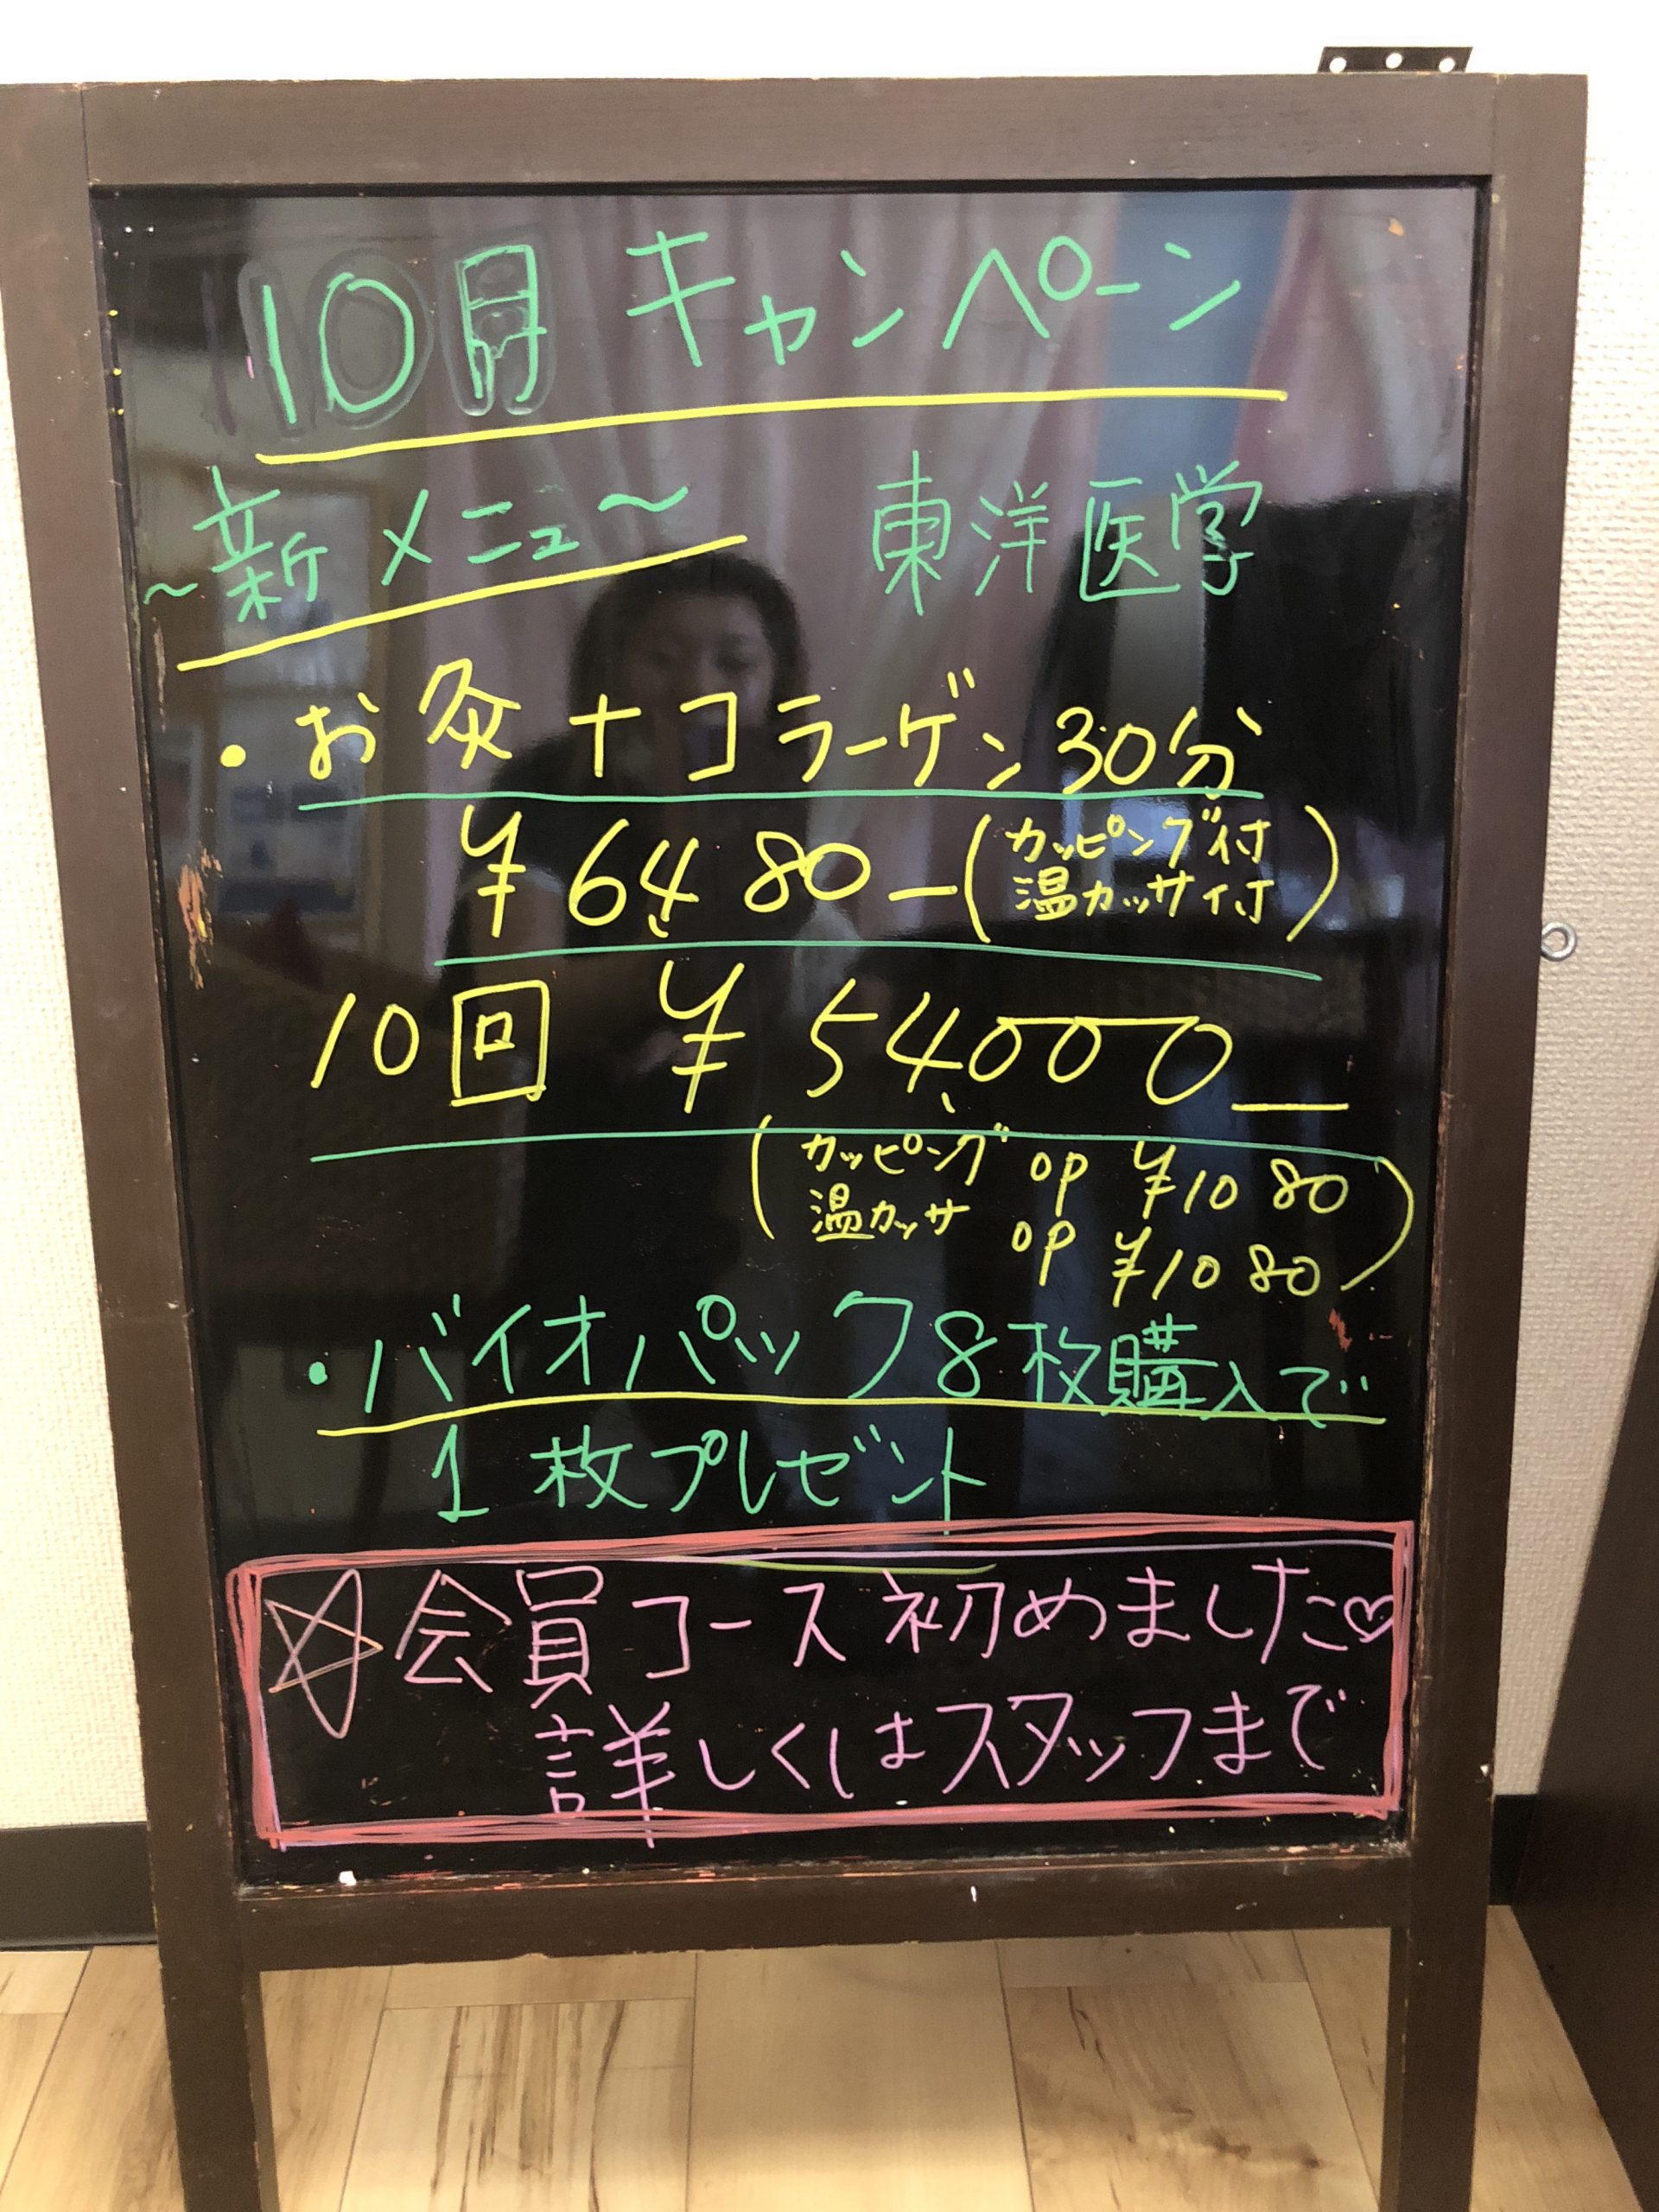 10月キャンペーン
~新メニュ~ 東洋医学
・お灸+コラーゲン30分
¥6,480-(カッピング付
温カッサ付)
10回 ¥54,000-
(カッピング op ¥1080
温カッサ op ¥1080)
・バイオパック8枚購入で
1枚プレゼント
☆会員コース初めました♡
詳しくはスタッフまで